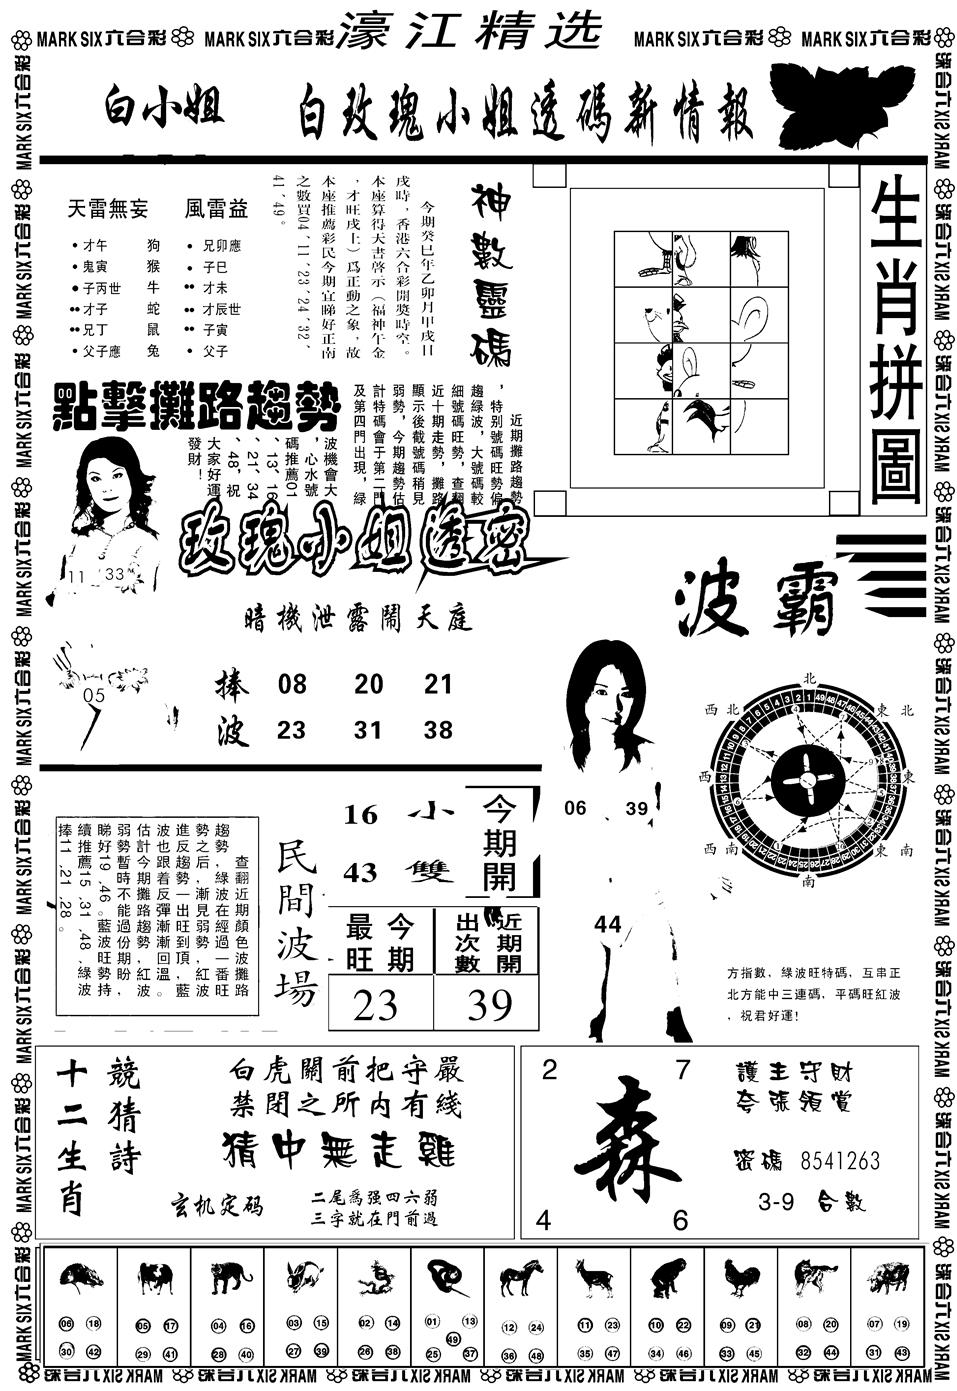 MARK SIX六合彩 MARK SIX六合彩 濠江精选 MARK SIX六合彩 MARK SIX六合彩
白小姐 白玫瑰小姐透碼新情報
天雷無妄 風雷益
才午 狗
鬼寅 猴
子丙世 牛
才子 蛇
兄丁 鼠
父子應 兔
兄卯應
子巳
才未
才辰世
子寅
父子
神數靈碼
今期癸巳年乙卯月甲戌日
戌時，香港六合彩開獎時空。
本座算得天書啓示（福神午金
，才旺戌上）爲正動之象，故
本座推薦彩民今期宜睇好正南
之數買04、11、23、24、32、
41、49。
生肖拼圖
點擊攤路趨勢
近期攤路趨勢
，特別號碼旺勢偏
趨綠波，大號碼較
細號碼旺勢，查翻
近十期走勢，攤路
顯示後截號碼稍見
弱勢，今期趨勢估
計特碼會于第二門
及第四門出現，綠
波機會大
，心水號
碼推薦01
、13、16
、21、34
、48，祝
大家好運
發財！
11 33
05
玫瑰小姐透密
暗機泄露鬧天庭
捧 08 20 21
波 23 31 38
波霸
06 39
44
北
東北
東
東南
南
西南
西
西北
方指數，綠波旺特碼，互串正
北方能中三連碼，平碼旺紅波
，祝君好運！
查翻近期顏色波攤路
趨勢，綠波在經過一番旺
勢之后，漸見弱勢，紅波
進反趨勢一出旺到頂，藍
波也跟着反彈漸漸回溫。
估計今期攤路趨勢，紅波
弱勢暫時不能過份期盼，
睇好19、46。藍波旺勢持
續推薦15、31、48，綠波
捧11、21、28。
民間波場
16 小
43 雙
今期開
最旺 今期
近期開出次數
23 39
十二生肖
競猜詩
白虎關前把守嚴
禁閉之所内有綫
猜中無走雞
玄机定码
二尾爲强四六弱
三字就在門前過
2 7
森
4 6
護主守財
夸張領賞
密碼 8541263
3-9 合數
06 18 30 42
05 17 29 41
04 16 28 40
03 15 27 39
02 14 26 38
01 13 49 25 37
12 24 36 48
11 23 35 47
10 22 34 46
09 21 33 45
08 20 32 44
07 19 31 43